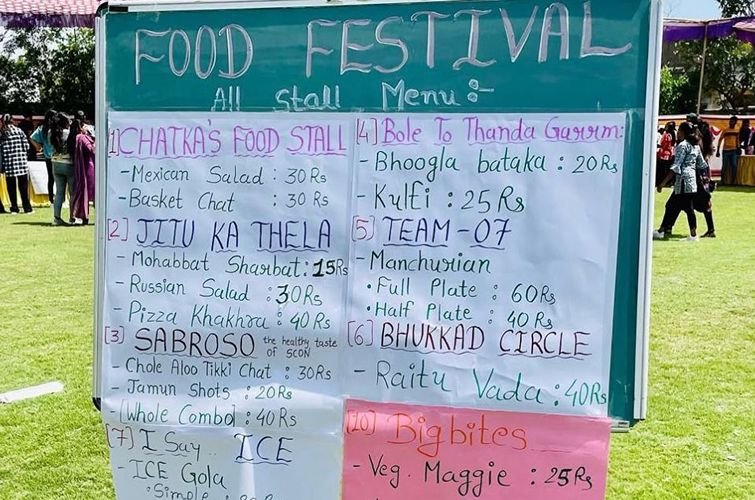 FOOD FESTIVAL
All Stall Menu:-
[1] CHATKA'S FOOD STALL
- Mexican Salad : 30 Rs
- Basket Chat : 30 Rs
[2] JITU KA THELA
- Mohabbat Sharbat : 15Rs
- Russian Salad : 30Rs
- Pizza Khakhra : 40 Rs
[3] SABROSO the healthy taste
of SCON
- Chole Aloo Tikki Chat : 30Rs
- Jamun Shots : 20Rs
- [Whole Combo] : 40 Rs
[7] I Say.. ICE
- ICE Gola
• Simple :
[4] Bole To Thanda Garrm:
- Bhoogla bataka : 20Rs
- Kulfi : 25Rs
[5] TEAM-07
- Manchurian
• Full Plate : 60Rs
• Half Plate : 40 Rs
[6] BHUKKAD CIRCLE
- Raitu Vada : 40Rs
[10] Big bites
- Veg. Maggie : 25Rs